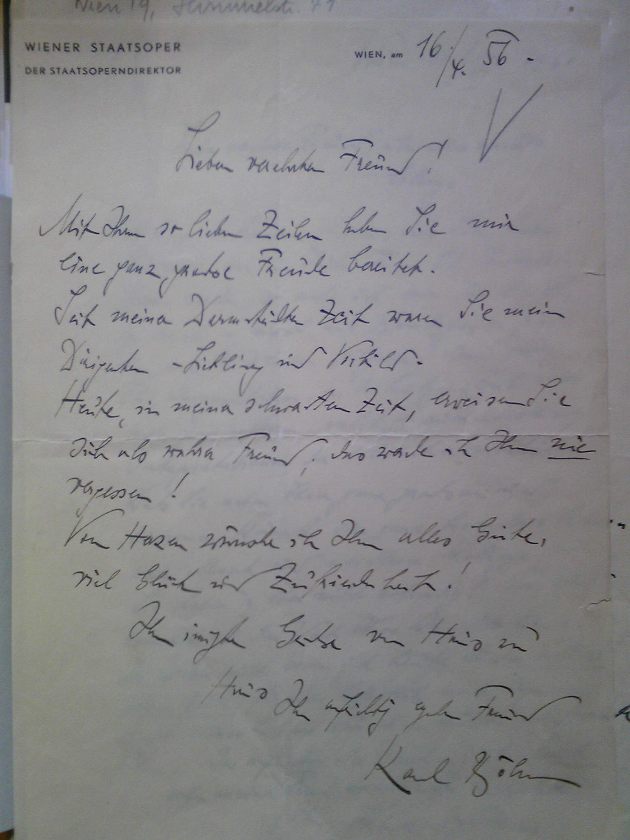 Wien 19, Himmelstr. 41
WIENER STAATSOPER
DER STAATSOPERNDIREKTOR
WIEN, am 16/4. 56.
Lieber verehrter Freund!
Mit Ihren so lieben Zeilen haben Sie mir
eine ganz große Freude bereitet.
Seit meiner Darmstädter Zeit waren Sie mein
Dirigenten-Liebling und Vorbild.
Heute, in meiner schwersten Zeit, erweisen Sie
Sich als wahrer Freund; das werde ich Ihnen nie
vergessen!
Von Herzen wünsche ich Ihnen alles Gute,
viel Glück und Zufriedenheit!
Ihnen innigste Grüße von Haus zu
Haus Ihr aufrichtig ergebener Freund
Karl Böhm